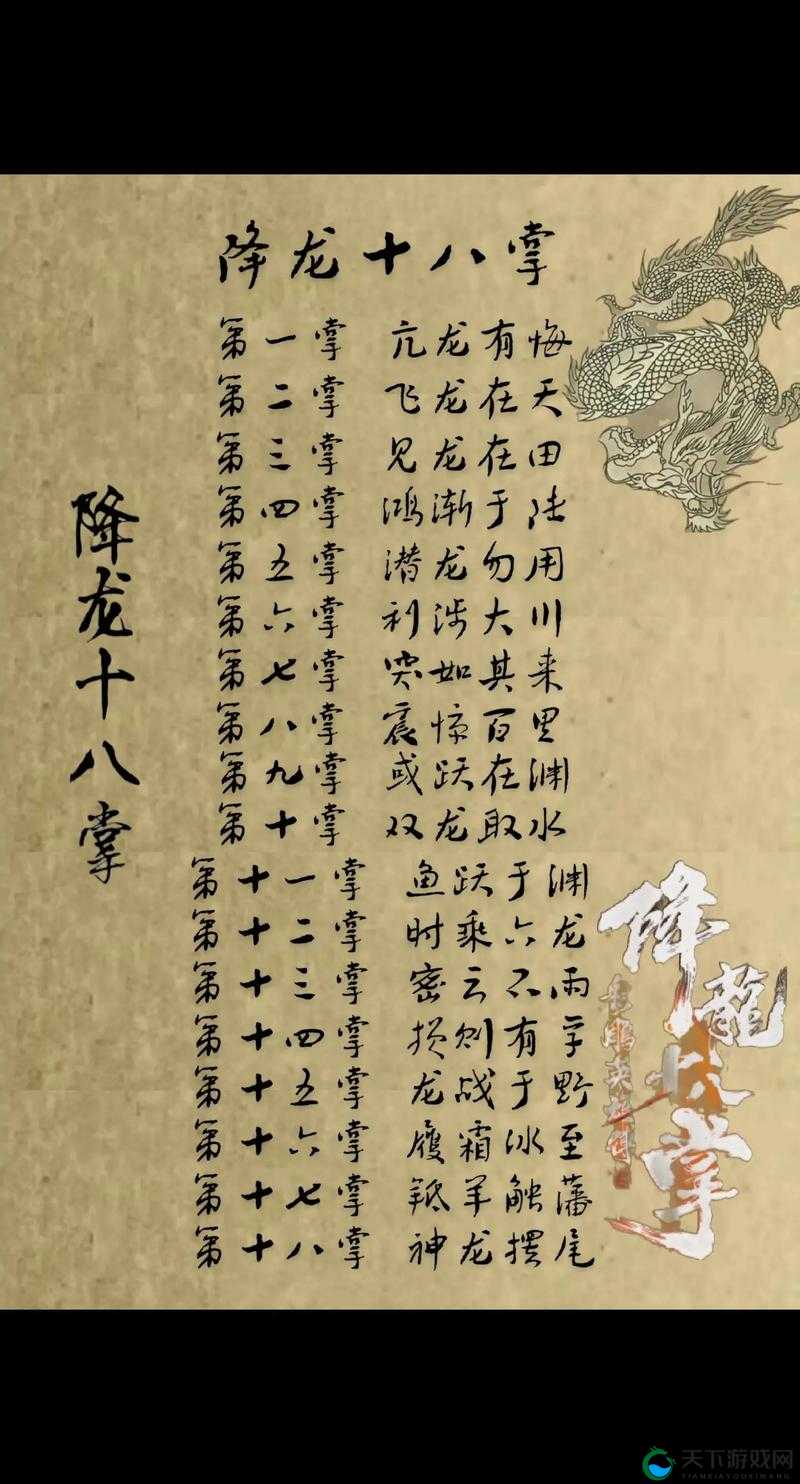 降龙十八掌
第一掌 亢龙有悔
第二掌 飞龙在天
第三掌 见龙在田
第四掌 鸿渐于陆
第五掌 潜龙勿用
第六掌 利涉大川
第七掌 突如其来
第八掌 震惊百里
第九掌 或跃在渊
第十掌 双龙取水
第十一掌 鱼跃于渊
第十二掌 时乘六龙
第十三掌 密云不雨
第十四掌 损则有孚
第十五掌 龙战于野
第十六掌 履霜冰至
第十七掌 羝羊触藩
第十八掌 神龙摆尾
降龙十八掌
降龍
掌
天下游戏网
TIANXIAYOUXIWANG